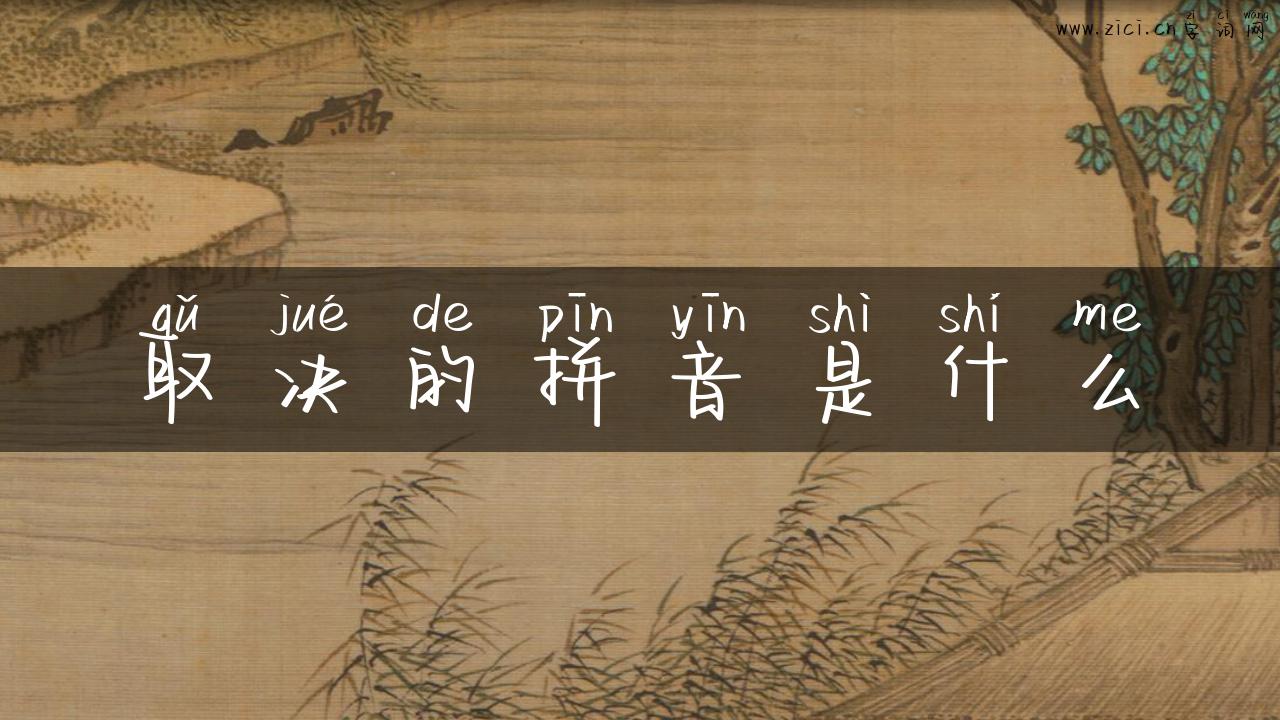 zì cí wǎng
www.zici.cn字词网
qǔ jué de pīn yīn shì shí me
取决的拼音是什么